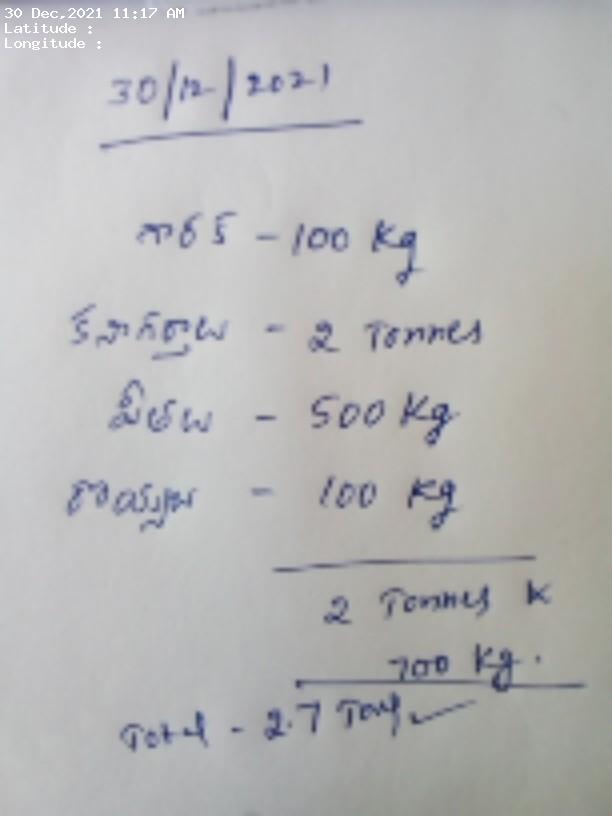 30 Dec,2021 11:17 AM
Latitude :
Longitude :
30/12/2021
- 100 Kg
- 2 Tonnes
పీతలు - 500 Kg
రొయ్యలు - 100 Kg
2 Tonnes K
700 Kg.
Total - 2.7 Tons